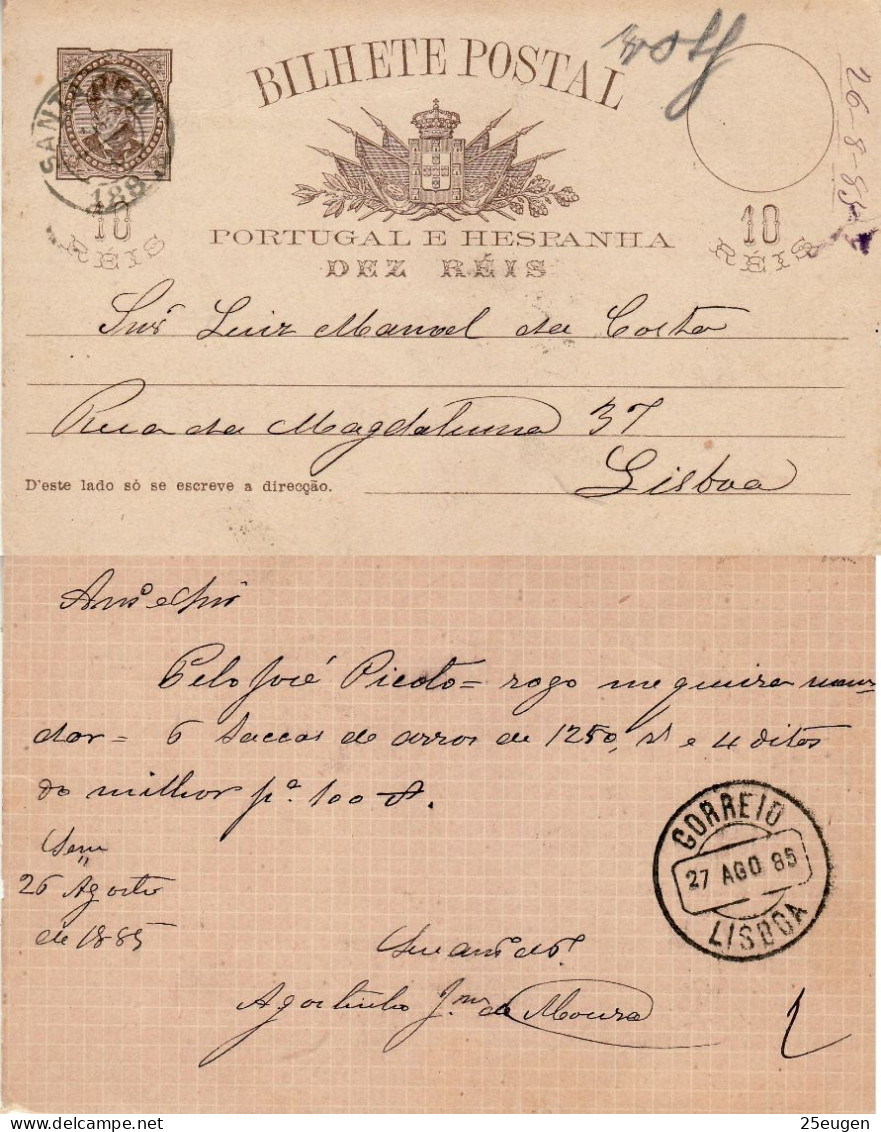 BILHETE POSTAL
26-8-85
SANT
188
10 RÉIS
10 RÉIS
PORTUGAL E HESPANHA
DEZ RÉIS
Snr Luiz Manoel da Costa
Rua da Magdalenna 37
Lisboa
D'este lado só se escreve a direcção.
Amo e Snr
Pelo José Picoto = rogo me queira man-
dar = 6 saccas de arros de 1250, rs e 4 ditos
do milhor pa. 100
26 Agosto
de 1885
CORREIO
27 AGO 85
LISBOA
Agostinho Jm de Moura
25eugen